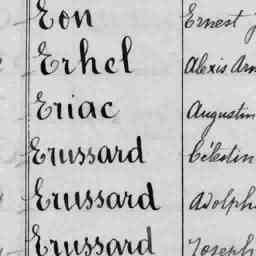 Eon Ernest
Erhel Alexis
Eriac Augustin
Erussard Célestin
Erussard Adolphe
Erussard Joseph